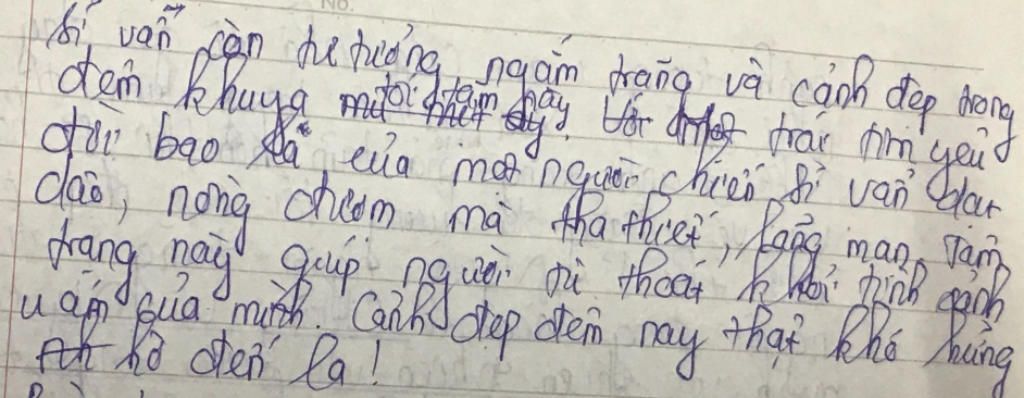 sĩ vẫn còn tư tưởng ngắm trăng và cảnh đẹp trong
đêm khuya tối tăm này. Với trái tim yêu
đời bao la của một người chiến sĩ vẫn dạt
dào, nồng đượm mà tha thiết, lãng mạn. Tâm
trạng này giúp người tù thoát khỏi tình cảnh
u ám của mình. Cảnh đẹp đêm nay thật khó hững
hờ đến lạ!